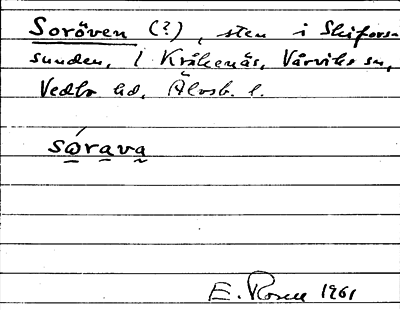 Soröven (?), sten i Skiforsa
sunden, l Kråkenäs, Vårviks sn,
Vedbo hd, Älvsb. l.
sórava
E. Rosell 1961